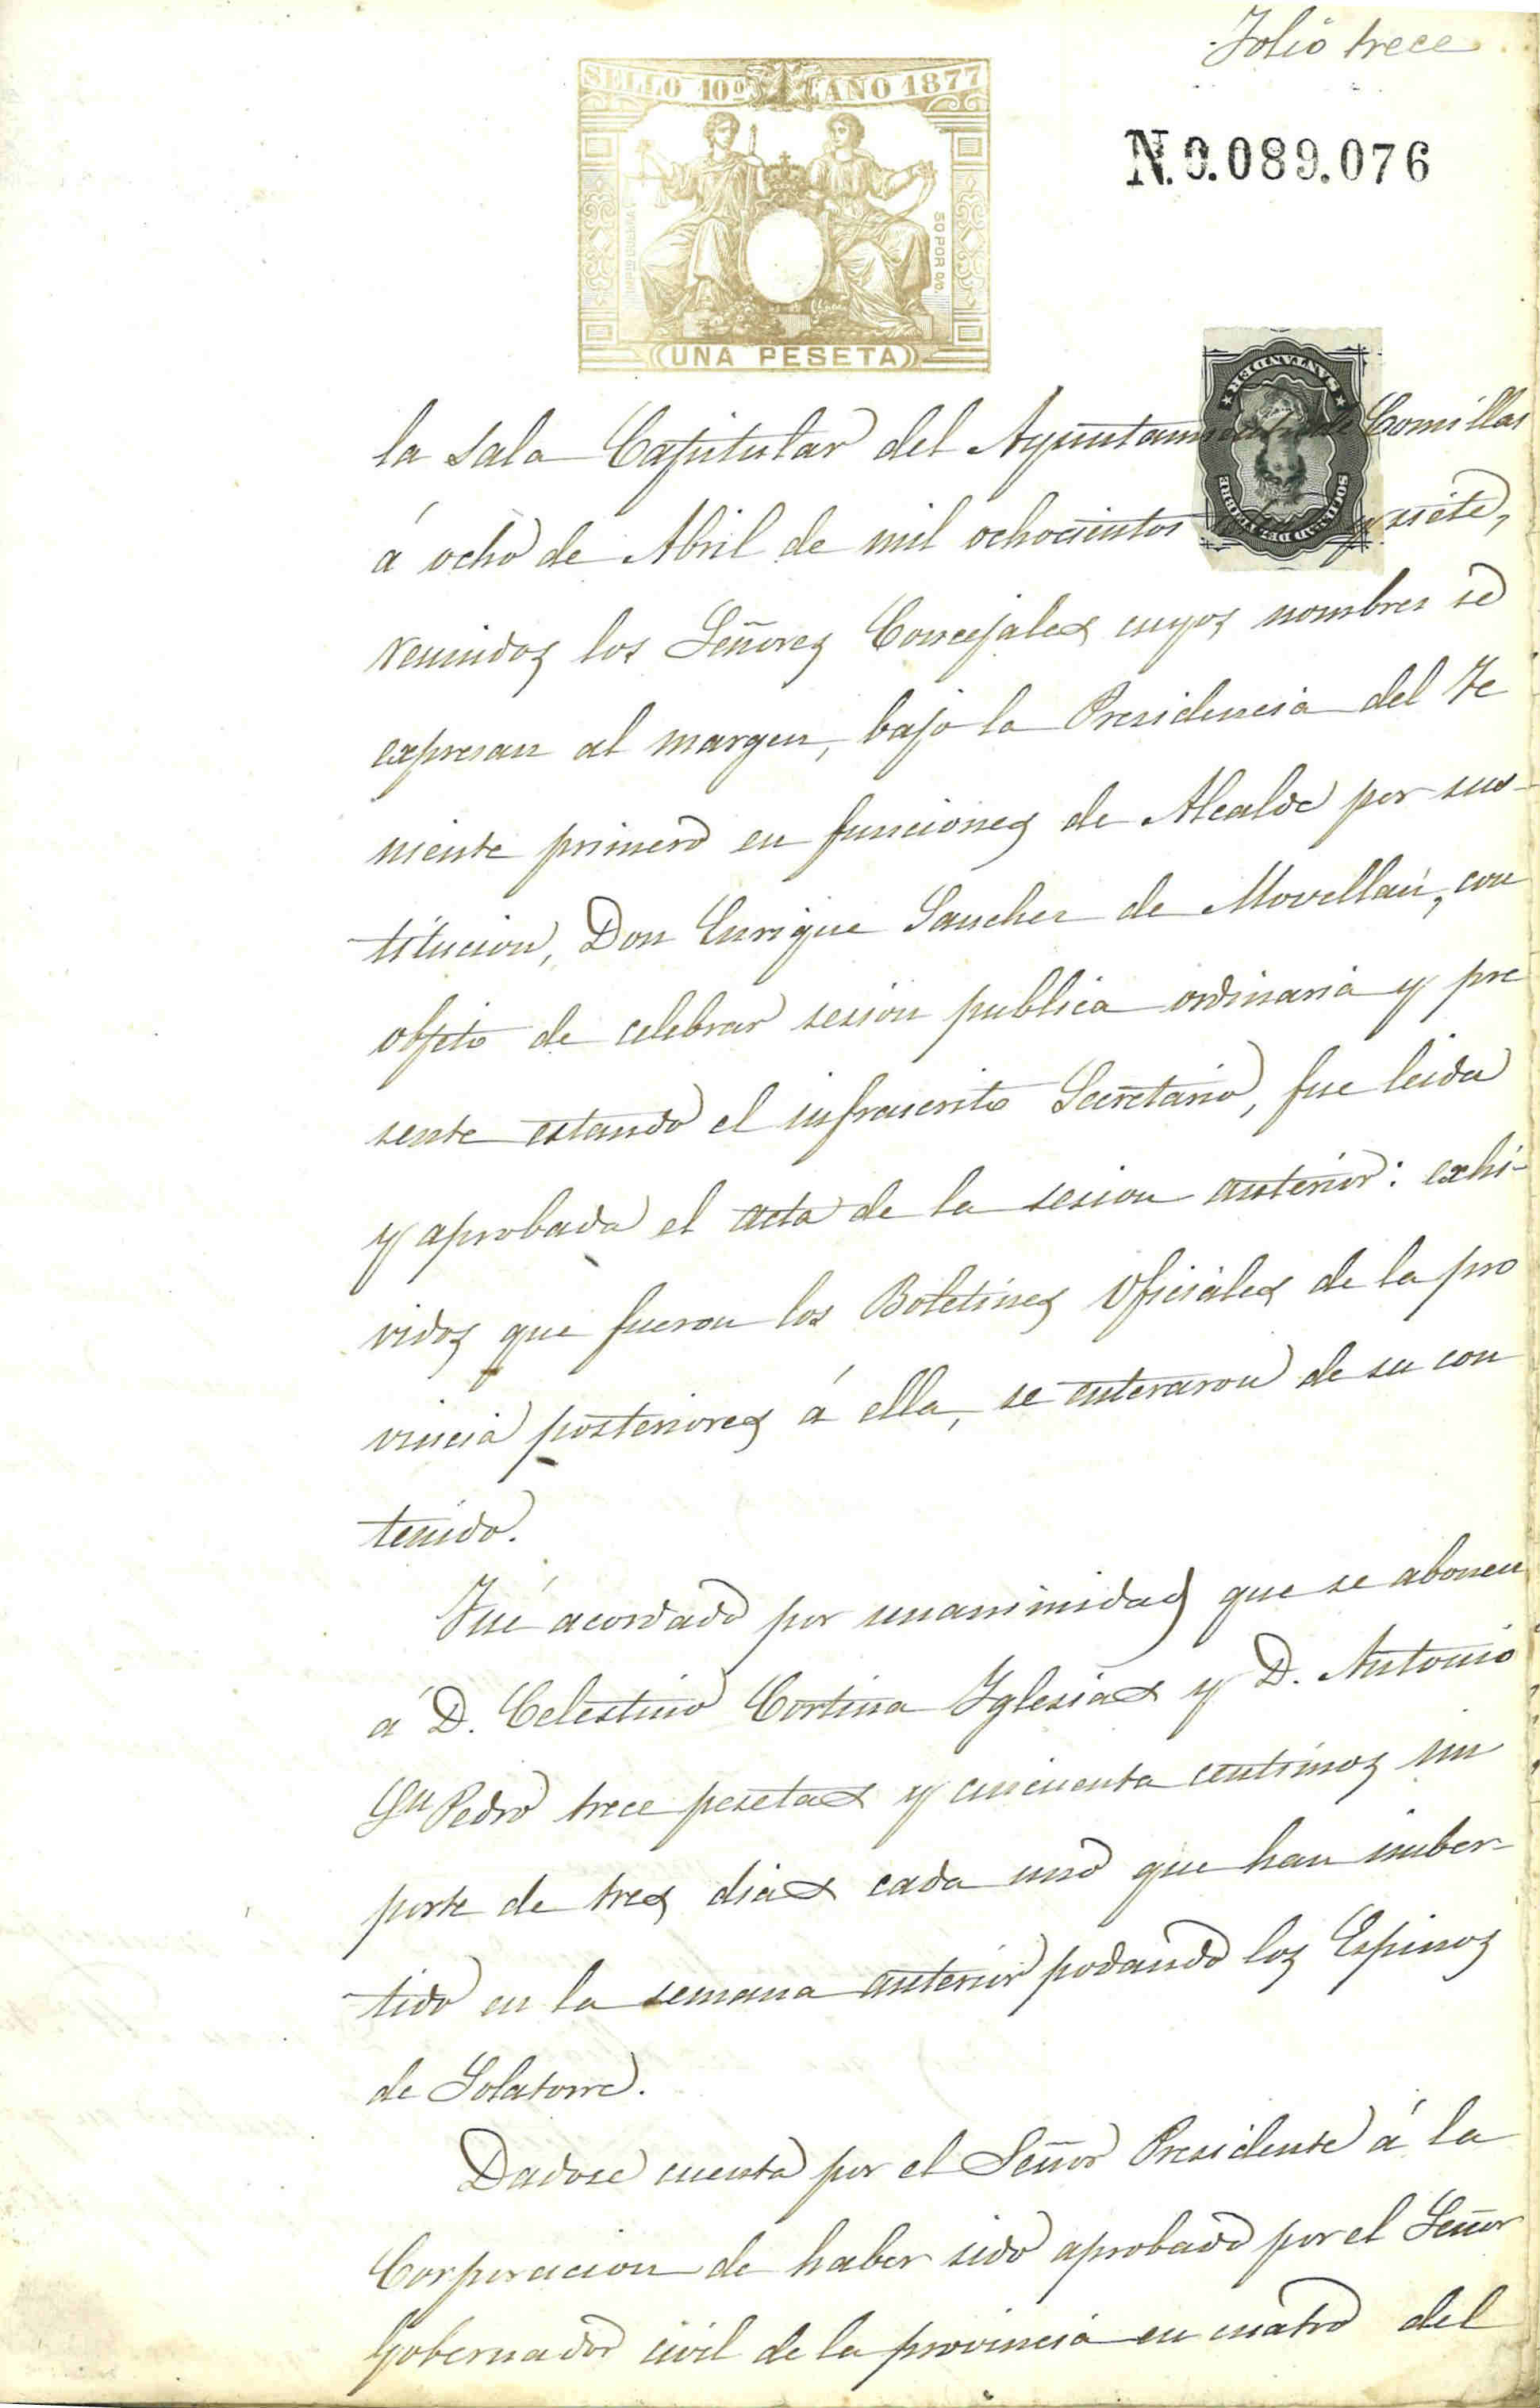 Folio trece
SELLO 10º AÑO 1877
N.0.089.076
IMPTO GUERRA
50 POR 0/0.
UNA PESETA
SANTANDER
SOCIEDAD DEL TIMBRE
la sala Capitular del Ayuntamiento de Comillas
á ocho de Abril de mil ochocientos y siete,
reunidos los Señores Concejales cuyos nombres se
expresan al margen, bajo la Presidencia del Te
niente primero en funciones de Alcalde por sus-
titucion, Don Enrique Sanchez de Movellan, con
objeto de celebrar sesion publica ordinaria y pre
sente estando el infrascrito Secretario, fue leida
y aprobada el acta de la sesion anterior: exhi-
vidos que fueron los Boletines Oficiales de la pro
vincia posteriores á ella, se enteraron de su con
tenido.
Fué acordado por unanimidad que se abonen
á D. Celestino Cortina Iglesias y D. Antonio
Sn Pedro trece pesetas y cincuenta centimos im
porte de tres dias cada uno que han imber-
tido en la semana anterior podando los Espinos
de Solatorre.
Dadose cuenta por el Señor Presidente á la
Corporacion de haber sido aprobado por el Señor
Gobernador civil de la provincia en cuatro del